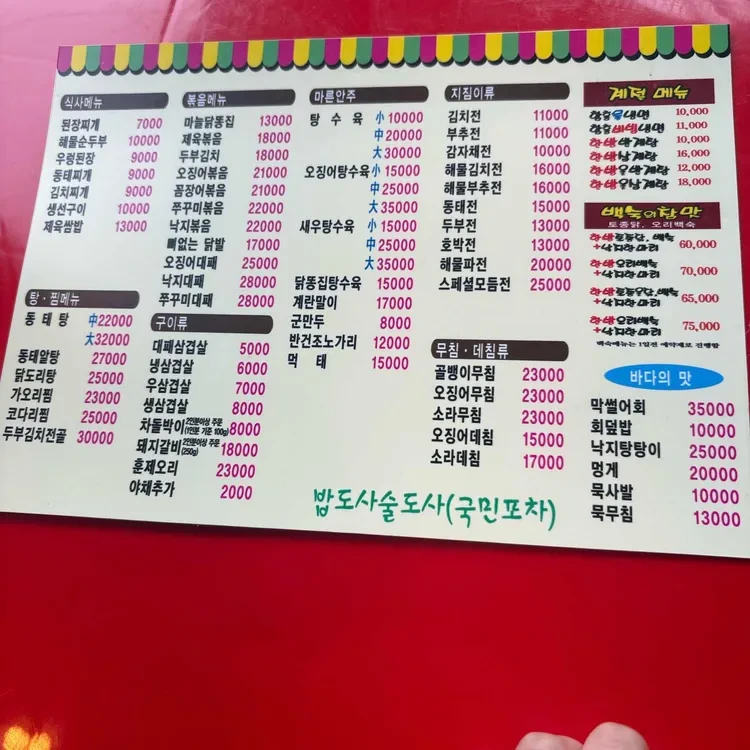 식사메뉴
된장찌개 7000
해물순두부 10000
우렁된장 9000
동태찌개 9000
김치찌개 9000
생선구이 10000
제육쌈밥 13000
탕·찜메뉴
동태탕 中22000
大32000
동태알탕 27000
닭도리탕 25000
가오리찜 23000
코다리찜 25000
두부김치전골 30000
볶음메뉴
마늘닭똥집 13000
제육볶음 18000
두부김치 18000
오징어볶음 21000
꼼장어볶음 21000
쭈꾸미볶음 22000
낙지볶음 22000
뼈없는 닭발 17000
오징어대패 25000
낙지대패 28000
쭈꾸미대패 28000
구이류
대패삼겹살 5000
냉삼겹살 6000
우삼겹살 7000
생삼겹살 8000
차돌박이 2인분이상 주문 (1인분 기준 100g) 8000
돼지갈비 2인분이상 주문 (250g) 18000
훈제오리 23000
야채추가 2000
마른안주
탕수육 小 10000
中 20000
大 30000
오징어탕수육 小 15000
中 25000
大 35000
새우탕수육 小 15000
中 25000
大 35000
닭똥집탕수육 15000
계란말이 17000
군만두 8000
반건조노가리 12000
먹태 15000
지짐이류
김치전 11000
부추전 11000
감자채전 10000
해물김치전 16000
해물부추전 16000
동태전 15000
두부전 13000
호박전 13000
해물파전 20000
스페셜모듬전 25000
무침·데침류
골뱅이무침 23000
오징어무침 23000
소라무침 23000
오징어데침 15000
소라데침 17000
계절 메뉴
10,000
11,000
10,000
16,000
12,000
18,000
백숙의참맛
토종닭, 오리백숙
60,000
+낙지한마리
70,000
+낙지한마리
65,000
+낙지한마리
75,000
+낙지한마리
백숙메뉴는 1일전 예약제로 진행함
바다의 맛
막썰어회 35000
회덮밥 10000
낙지탕탕이 25000
멍게 20000
묵사발 10000
묵무침 13000
밥도사술도사(국민포차)